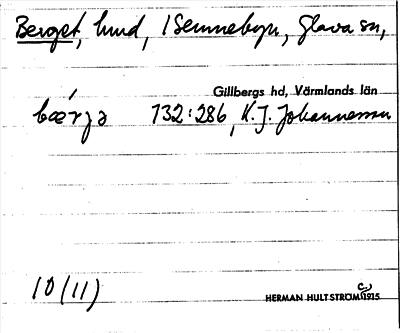 Berget, hmd, 1 Sennebyn, Glava sn,
Gillbergs hd, Värmlands län
bǽrjə 132:286, K. J. Johannesson
10 (11)
HERMAN HULTSTRÖM (c) 1915